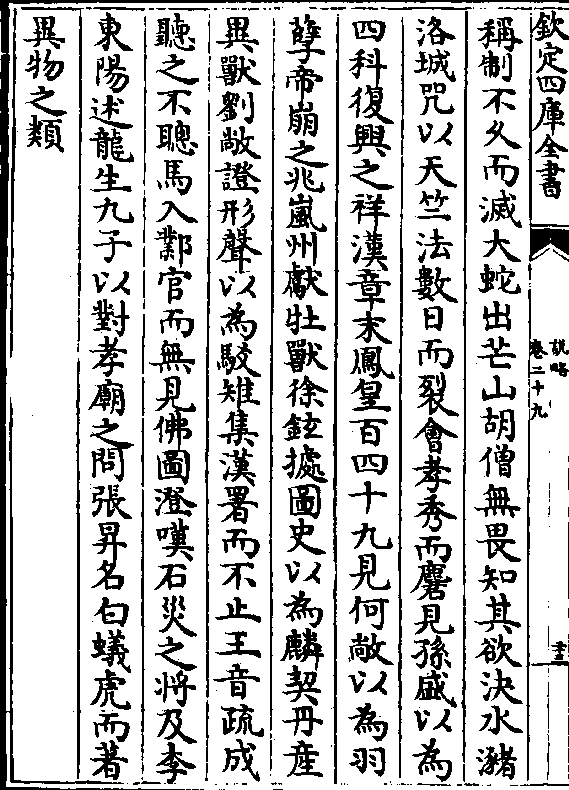 欽定四庫全書
說略
卷二十九
稱制不久而滅大蛇出芒山胡僧無畏知其欲決水瀦
洛城咒以天竺法數日而裂會孝秀而麏見孫盛以為
四科復興之祥漢章末鳳皇百四十九見何敞以為羽
孽帝崩之兆嵐州獻牡獸徐鉉據圖史以為麟契丹産
異獸劉敞證形聲以為駮雉集漢署而不止王音疏成
聽之不聰馬入鄴宫而無見佛圖澄嘆石災之將及李
東陽述龍生九子以對孝廟之問張昇名白蟻虎而著
異物之類